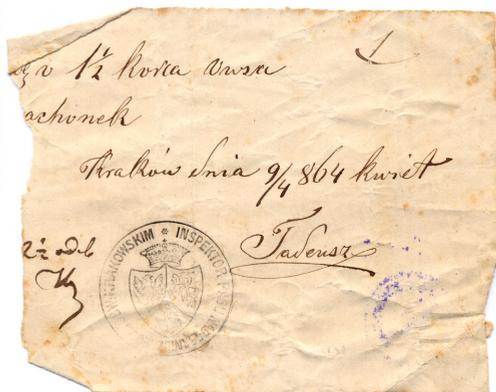 1
v 1½ korca owsa
achonek
Kraków dnia 9/4 864 kwiet
Tadeusz
2½ odeb
KRAKOWSKIM * INSPEKTOR